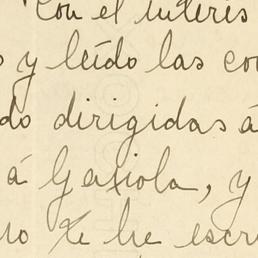 Con el interés
s y leído las co
do dirigidas á
á Gaxiola, y
ro te he escr